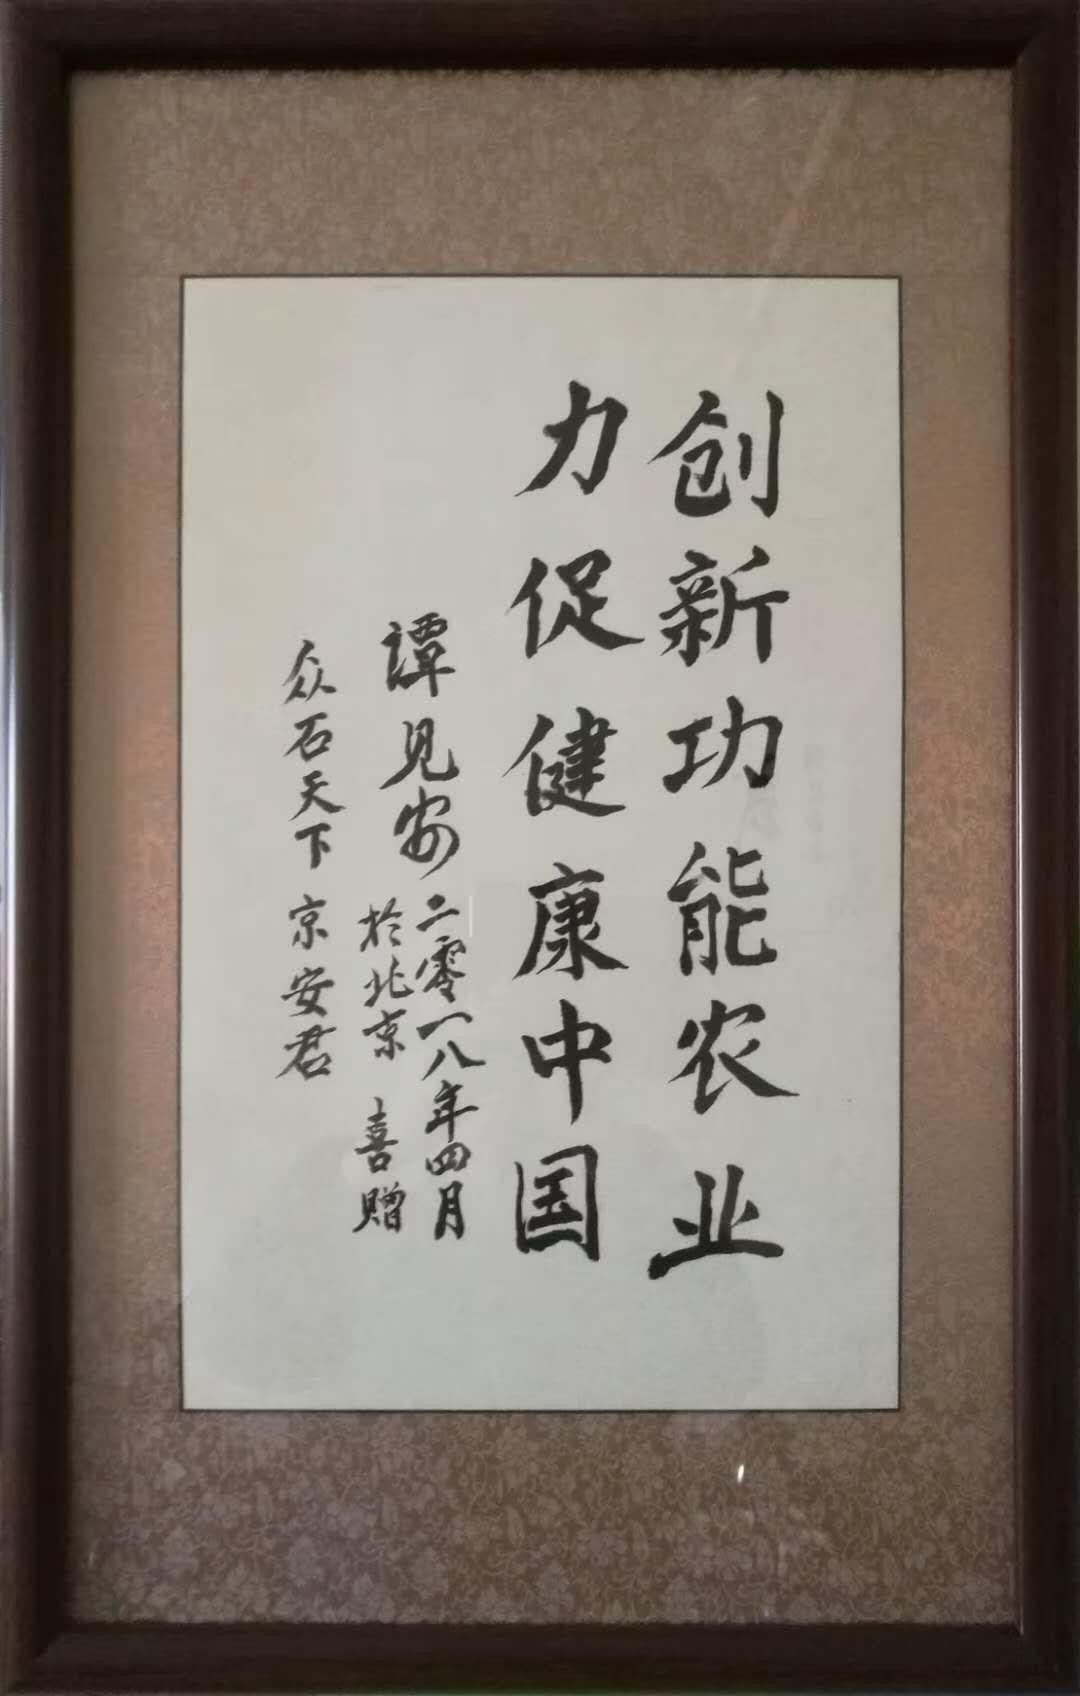 创新功能农业
力促健康中国
谭见安 二零一八年四月
於北京 喜赠
众石天下 京安君